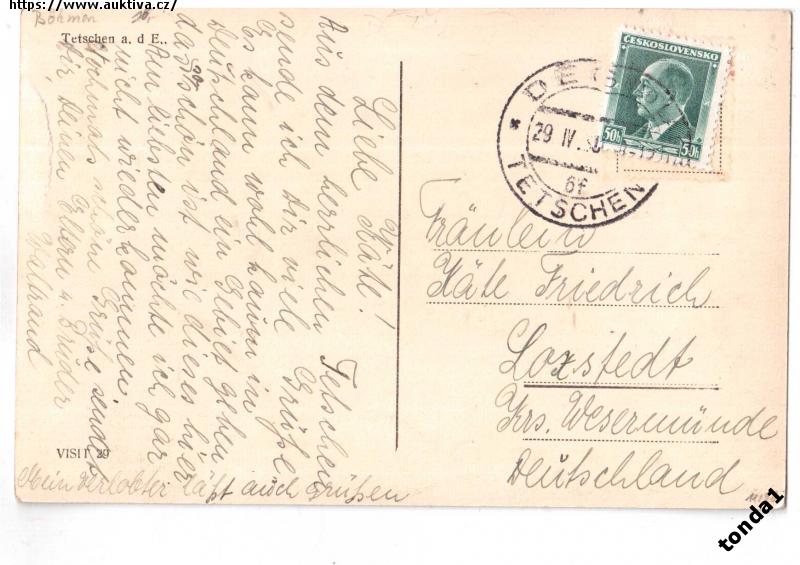 https://www.auktiva.cz/
Böhmen
Tetschen a. d E..
Liebe Käte!
Aus dem herrlichen Tetschen
sende ich dir viele Grüße
Es kann wohl kaum in
Deutschland ein Gebiet geben
das so schön ist wie dieses hier
Am liebsten möchte ich gar
nicht wieder kommen
Nochmals schöne Grüße sendet
dir deinen Eltern u. Bruder
Waltraud
Mein Verlobter läßt auch Grüßen
VISIT 29
ČESKOSLOVENSKO
50h 50h
TETSCHEN
29 IV.
6f
Fräulein
Käte Friedrich
Loxstedt
Krs. Wesermünde
Deutschland
tonda1